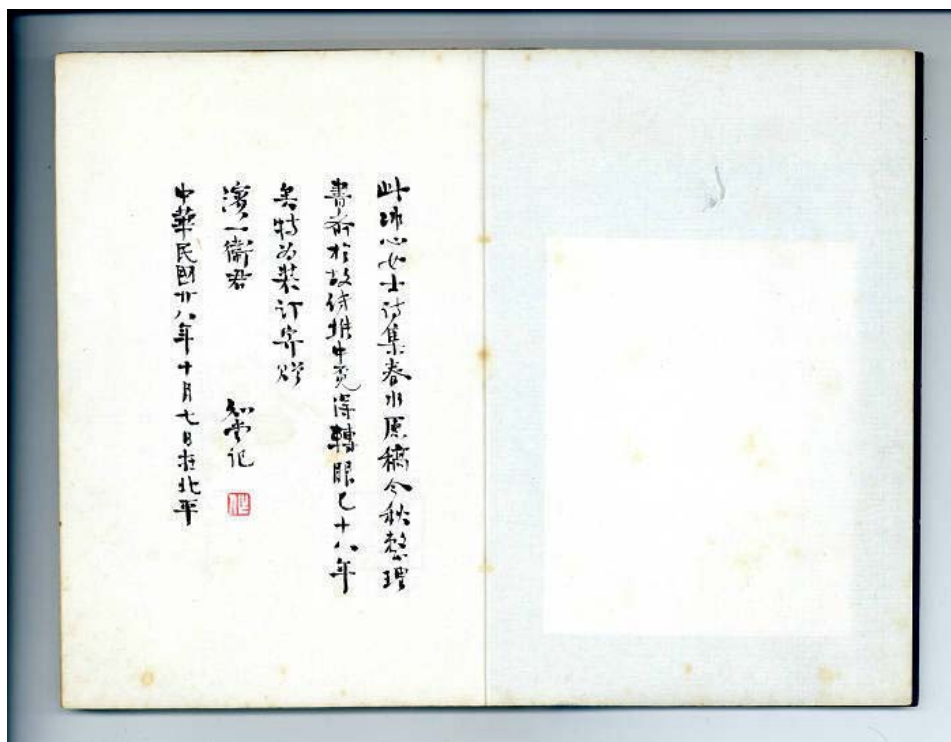 此冰心女士诗集春水原稿今秋整理
書斎於故纸堆中覓得轉眼已十八年
矣特為装訂寄贈
濱一衛君　知堂记
中華民國廿八年十月七日在北平